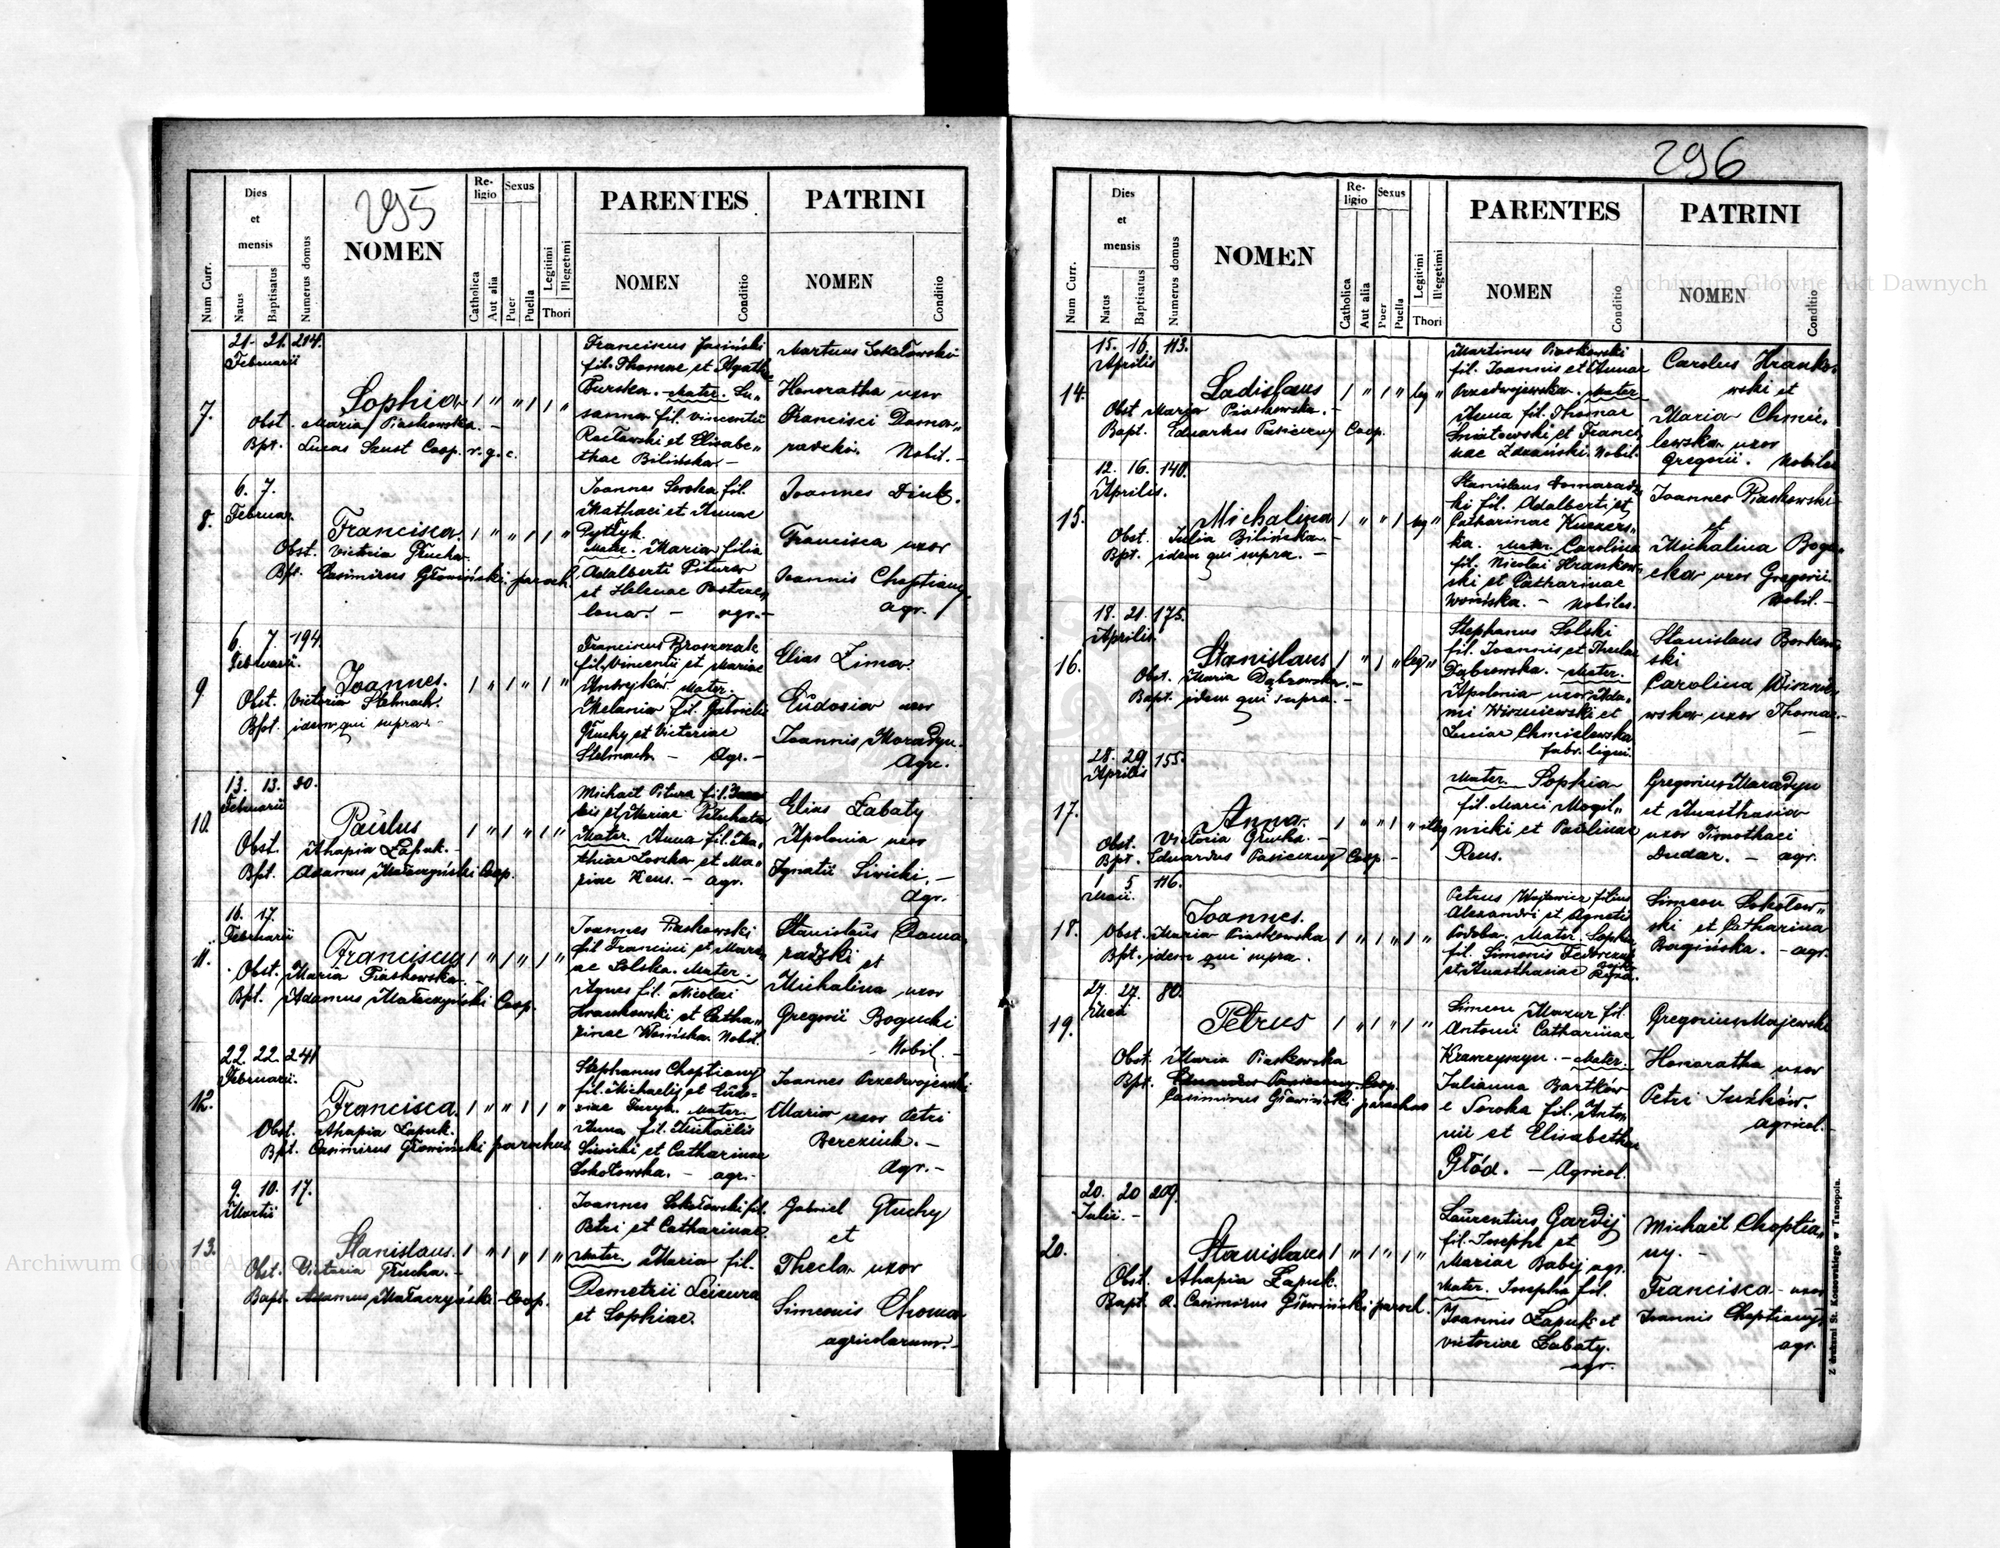 295
Num Curr.
Dies et mensis
Natus
Baptisatus
Numerus domus
NOMEN
Religio
Catholica
Aut alia
Sexus
Puer
Puella
Legitimi
Illegetimi
Thori
PARENTES
NOMEN
Conditio
PATRINI
NOMEN
Conditio
7.
21. 21. 214.
Februarii
Sophia
Obst. Maria Piaskowska.
Bpt. Lucas Szust Coop. r. g. c.
Franciscus Jasiński
fil. Thomae et Agathae
Turska. Mater. Su-
sanna fil. Vincentii
Racławski et Elisabe-
thae Bilińska
Martinus Sokołowski
Honoratha uxor
Francisci Doma-
radzki. Nobil.
8.
6. 7.
Februar.
Francisca.
Obst. Victoria Głucha.
Bpt. Casimirus Głowiński paroch.
Joannes Soroka fil.
Mathaei et Annae
Pytłyk.
Mater. Maria filia
Adalberti Pitura
et Helenae
agr.
Joannes
Francisca uxor
Joannis Choptiany
agr.
9
6. 7. 194.
Februarii.
Joannes.
Obst. Victoria Stelmach.
Bpt. idem qui supra.
Franciscus
fil. Vincentii et Mariae
Andrejków. Mater.
Melania fil. Gabrielis
Głuchy et Victoriae
Stelmach. Agr.
Elias Zima.
Eudosia uxor
Joannis Moradyn.
Agr.
10.
13. 13. 30.
Februarii
Paulus
Obst. Ahapia Łapuk.
Bpt. Adamus Małaczyński Coop.
Michael Pitura fil.
et Mariae
Mater. Anna fil. Ma-
thiae Soroka et Ma-
riae Reus. agr.
Elias Łabaty
Apolonia uxor
Ignatii Siwicki.
Agr.
11.
16. 17.
Februarii
Franciscus
Obst. Maria Piaskowska.
Bpt. Adamus Małaczyński Coop.
Joannes Piaskowski
fil Francisci et Mari-
ae Solska. Mater.
Agnes fil. Nicolai
Hrankowski et Catha-
rinae Wońska. Nobil.
Stanislaus Doma-
radzki et
Michalina uxor
Gregorii Bogucki
Nobil.
12.
22. 22. 241
Februarii.
Francisca.
Obst. Ahapia Łapuk.
Bpt. Casimirus Głowiński parochus
Stephanus Choptiany
fil. Michaelis et Eudo-
xiae Furyk. Mater
Anna fil. Michaëlis
Siwicki et Catharinae
Sokołowska. agr.
Joannes Przedwojewski
Maria uxor Petri
Bereziuk.
Agr.
13.
9. 10. 17.
Martii
Stanislaus.
Obst. Victoria Głucha.
Bapt. Adamus Małaczyński Coop.
Joannes Sokołowski fil.
Petri et Catharinae.
Mater. Maria fil.
Demetrii
et Sophiae.
Gabriel Głuchy
et
Thecla uxor
Simeonis Choma
agricolarum.
296
Num Curr.
Dies et mensis
Natus
Baptisatus
Numerus domus
NOMEN
Religio
Catholica
Aut alia
Sexus
Puer
Puella
Legitimi
Illegetimi
Thori
PARENTES
NOMEN
Conditio
PATRINI
NOMEN
Conditio
14.
15. 16. 113.
Aprilis
Ladislaus
Obst Maria Piaskowska.
Bapt. Eduardus Pasieczny Coop.
Martinus Piaskowski
fil. Joannis et Annae
Przedwojewska. Mater
Anna fil. Thomae
Śniatowski et Francis-
cae Nobil.
Carolus Hranko-
wski et
Maria Chmie-
lewska uxor
Gregorii. Nobiles
15.
12. 16. 140.
Aprilis.
Michalina
Obst. Julia Bilińska.
Bpt. idem qui supra.
Stanislaus Domaradz-
ki fil. Adalberti et
Catharinae
ka. Mater Carolina
fil. Nicolai Hrankow-
ski et Catharinae
Wońska. Nobiles.
Joannes Piaskowski
et
Michalina Bogu-
cka uxor Gregorii.
Nobil.
16.
18. 21. 175.
Aprilis.
Stanislaus
Obst. Maria Dąbrowska.
Bapt. idem qui supra.
Stephanus Solski
fil. Joannis et Theclae
Dąbrowska. Mater.
Apolonia uxor Ada-
mi Wiszniewski et
Luciae Chmielewska
fabr. ligni.
Stanislaus Borkow-
ski
Carolina Wisznie-
wska uxor Thomae
17.
28. 29 155.
Aprilis
Anna.
Obst. Victoria Głucha.
Bpt. Eduardus Pasieczny Coop
Mater Sophia
fil. Marci Mogil-
nicki et Paulinae
Reus.
Gregorius Maradyn
et Anasthasia
uxor Timothaei
Dudar. agr.
18.
1 5 116.
Maii
Joannes.
Obst. Maria Piaskowska
Bpt. idem qui supra.
Petrus Wojtowicz filius
Alexandri et Agnetis
Podoba. Mater. Sophia
fil. Simonis Fedorczuk
et Anasthasiae
Simeon Sokołow-
ski et Catharina
Bagińska. agr.
19.
27. 27. 80.
Maii
Petrus
Obst. Maria Piaskowska
Bpt. Eduardus Pasieczny Coop.
Casimirus Głowiński parochus
Simeon Mazur fil.
Antonii Catharinae
Krawczyszyn. Mater.
Julianna Bartków
e Soroka fil. Anto-
nii et Elisabethae
Głód. Agricol.
Gregorius Majewski
Honoratha uxor
Petri Juśków.
agricol.
20.
20. 20 209.
Julii.
Stanislaus
Obst. Ahapia Łapuk.
Bapt. R. Casimirus Głowiński paroch.
Laurentius Gardij
fil. Josephi et
Mariae Babij agr.
Mater. Josepha fil.
Joannis Łapuk et
Victoriae Łabaty.
agr.
Michaël Choptia-
ny.
Francisca uxor
Joannis Choptiany
agr.
Z drukarni St. Kossowskiego w Tarnopolu.
Archiwum Główne Akt Dawnych
Archiwum Główne Akt Dawnych